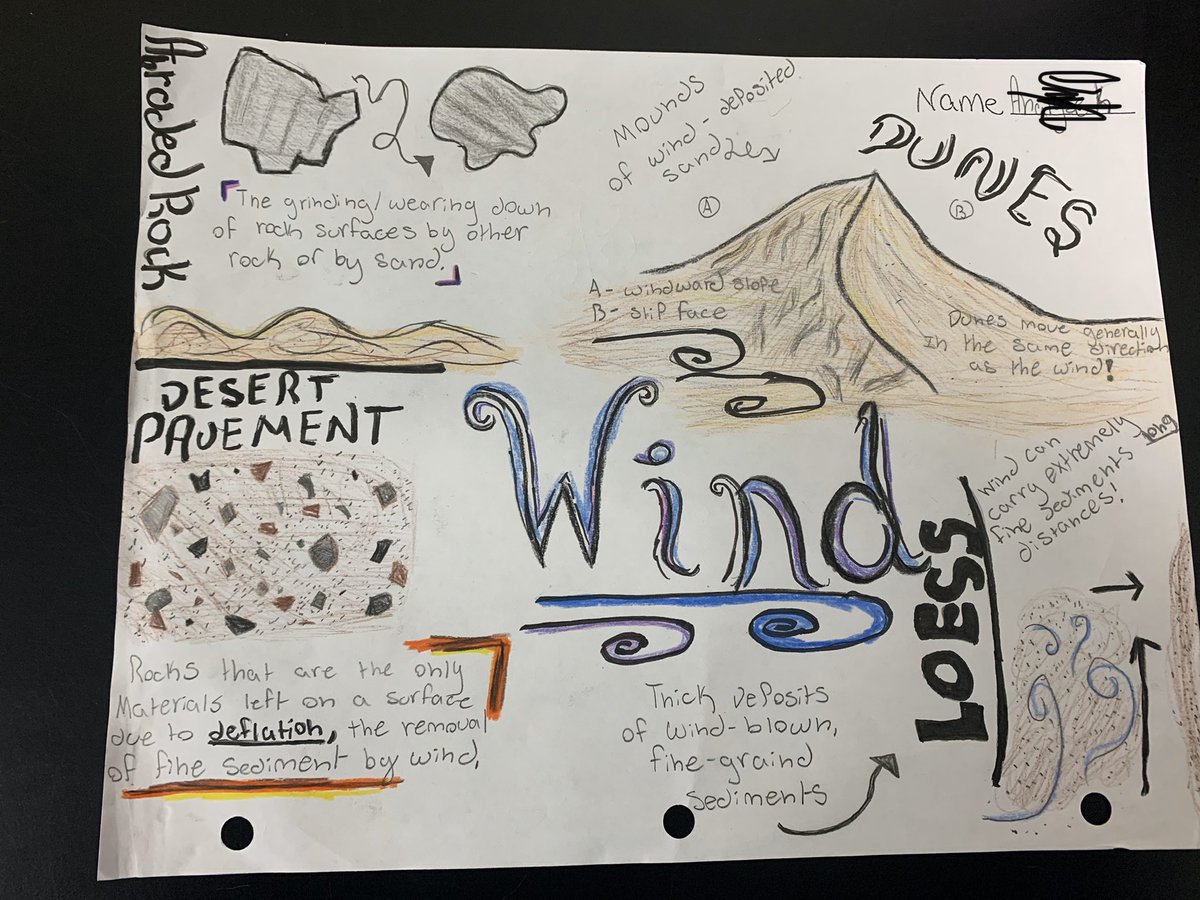 Abraded Rock
The grinding/wearing down
of rock surfaces by other
rock or by sand.
Mounds
of wind-deposited
sand
Name
DUNES
A
B
A- windward slope
B- slip face
Dunes move generally
In the same direction
as the wind!
DESERT
PAVEMENT
Rocks that are the only
Materials left on a surface
due to deflation, the removal
of fine sediment by wind.
Wind
LOESS
wind can
carry extremely
fine sediments long
distances!
Thick deposits
of wind-blown,
fine-graind
sediments